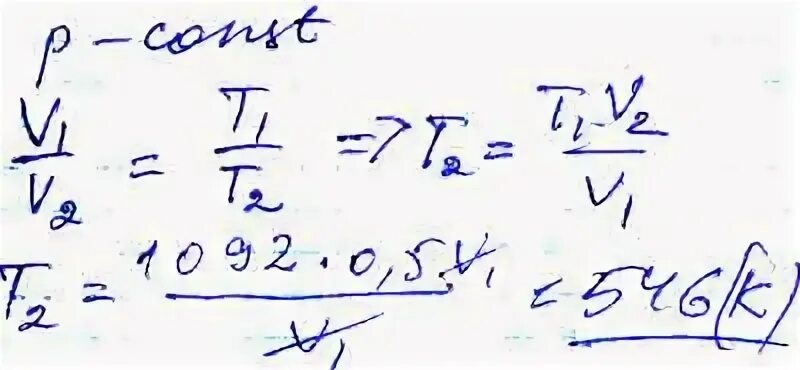 p - const
V₁/V₂ = T₁/T₂ => T₂ = T₁·V₂/V₁
T₂ = 1092·0,5·V₁/V₁ = 546(K)